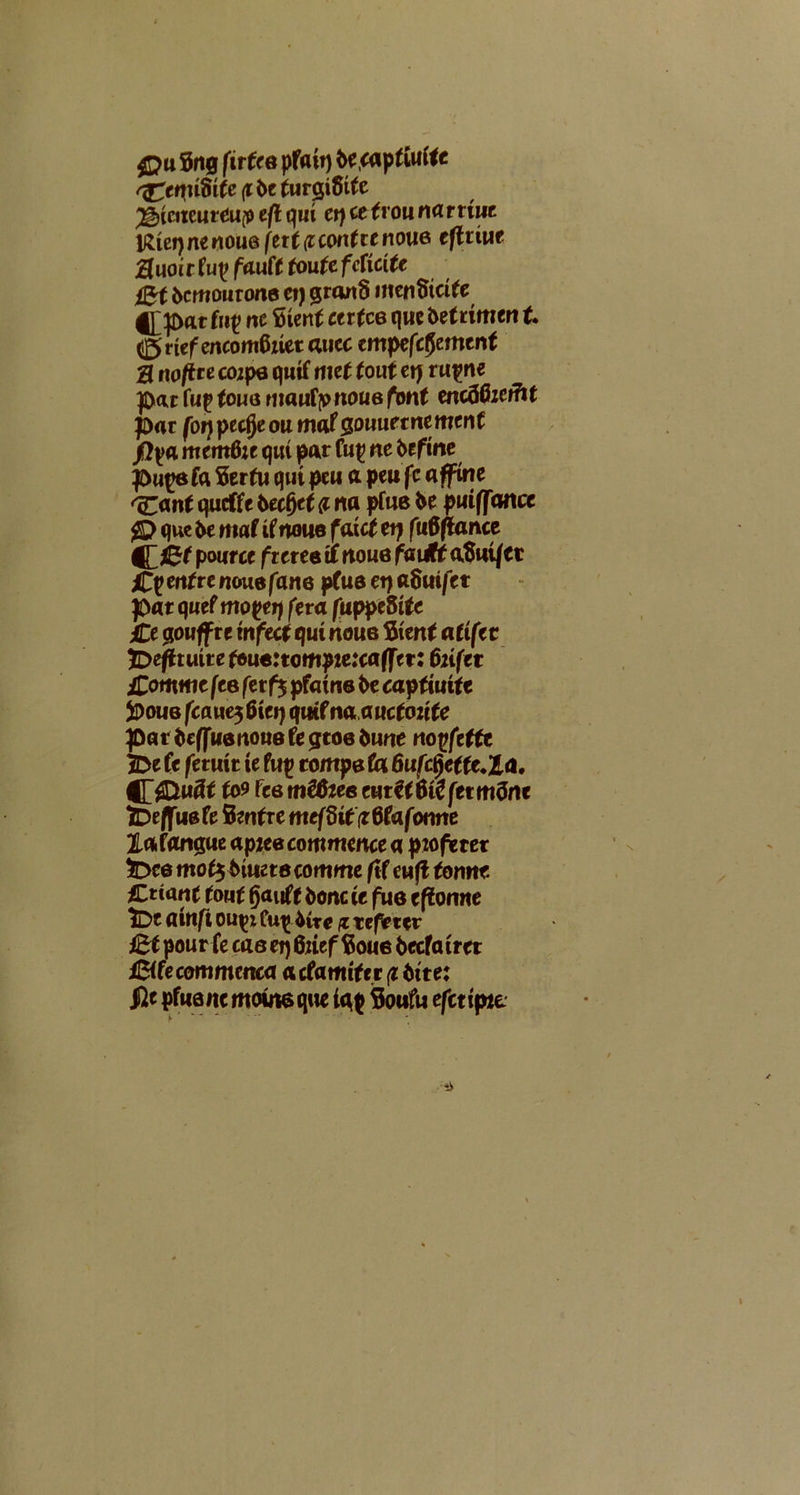 Du vng sirtes plain de captiuite
Temivite ⁊ de turgivite
Bieneureux est qui en ce trou narriue
Rien ne nous sert ⁊ contre nous estriue
Auoir luy fault toute felicite
Et demourons en grand mendicite
¶ Par luy ne vient certes que detriment
Grief encombrier auec empeschement
A nostre corps quil met tout en ruyne
Par luy tous maulx nous sont encōbremt
Par son peche ou mal gouuernement
Nya membre qui par luy ne define
Puys la vertu qui peu a peu se affine
Tant quelle dechet ⁊ na plus de puissance
O que de mal il nous faict en substance
¶ Et pource freres il nous fault aduiser
Cy entre nous sans plus en aduiser
Par quel moyen sera suppedite
Ce gouffre infect qui nous vient atiser
Destruire tous: rompre: casser: briser
Comme ses serfz plains de captiuite
Vous scauez bien quil na auctorite
Par dessus nous le gros dune noysette
De le seruir ie luy romps la buschette. La.
¶ Quāt to9 les mēbres eurēt biē sermōne
Dessus le ventre mesdit ⁊ blasonne
La langue apres commence a proferer
Des motz diuers comme sil eust tonne
Criant tout hault donc ie sus estonne
De ainsi ouyr luy dire ⁊ referer
Et pour le cas en brief vous declairer
Elle commenca a clamiter ⁊ dire:
Ne plus ne moins que iay voulu escripre